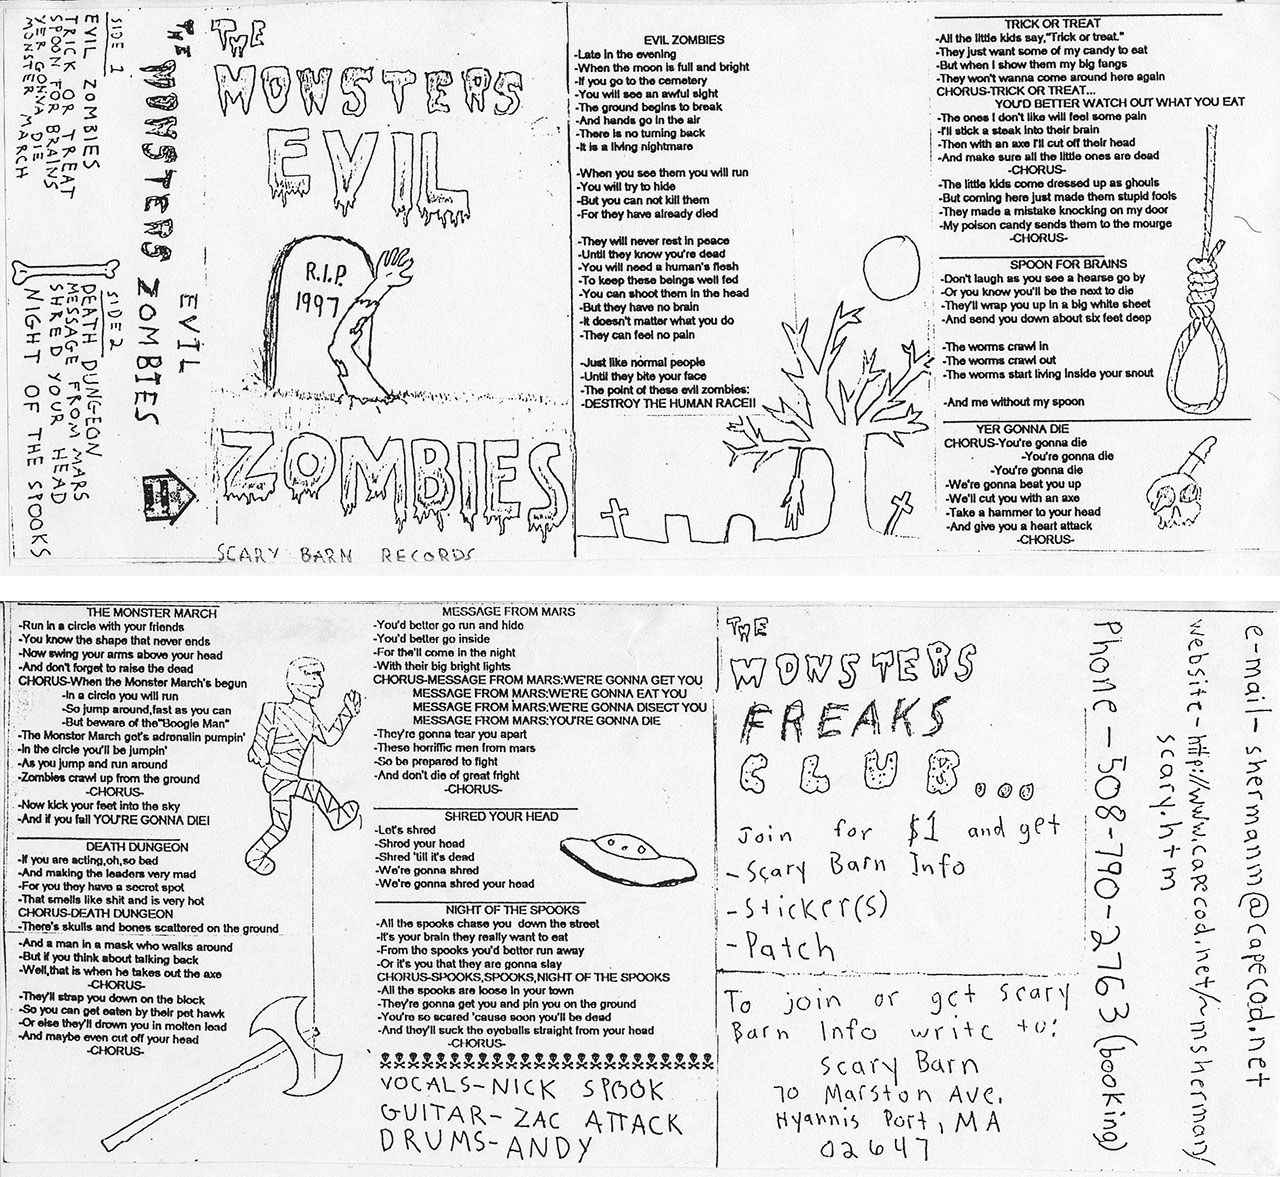 SIDE 1
EVIL ZOMBIES
TRICK OR TREAT
SPOON FOR BRAINS
YER GONNA DIE
MONSTER MARCH
SIDE 2
DEATH DUNGEON
MESSAGE FROM MARS
SHRED YOUR HEAD
NIGHT OF THE SPOOKS
THE MONSTERS EVIL ZOMBIES
THE
MONSTERS
EVIL
R.I.P.
1997
ZOMBIES
SCARY BARN RECORDS
EVIL ZOMBIES
-Late in the evening
-When the moon is full and bright
-If you go to the cemetery
-You will see an awful sight
-The ground begins to break
-And hands go in the air
-There is no turning back
-It is a living nightmare
-When you see them you will run
-You will try to hide
-But you can not kill them
-For they have already died
-They will never rest in peace
-Until they know you're dead
-You will need a human's flesh
-To keep these beings well fed
-You can shoot them in the head
-But they have no brain
-It doesn't matter what you do
-They can feel no pain
-Just like normal people
-Until they bite your face
-The point of these evil zombies:
-DESTROY THE HUMAN RACE!!
TRICK OR TREAT
-All the little kids say,"Trick or treat."
-They just want some of my candy to eat
-But when I show them my big fangs
-They won't wanna come around here again
CHORUS-TRICK OR TREAT...
YOU'D BETTER WATCH OUT WHAT YOU EAT
-The ones I don't like will feel some pain
-I'll stick a steak into their brain
-Then with an axe I'll cut off their head
-And make sure all the little ones are dead
-CHORUS-
-The little kids come dressed up as ghouls
-But coming here just made them stupid fools
-They made a mistake knocking on my door
-My poison candy sends them to the mourge
-CHORUS-
SPOON FOR BRAINS
-Don't laugh as you see a hearse go by
-Or you know you'll be the next to die
-They'll wrap you up in a big white sheet
-And send you down about six feet deep
-The worms crawl in
-The worms crawl out
-The worms start living inside your snout
-And me without my spoon
YER GONNA DIE
CHORUS-You're gonna die
-You're gonna die
-You're gonna die
-We're gonna beat you up
-We'll cut you with an axe
-Take a hammer to your head
-And give you a heart attack
-CHORUS-
THE MONSTER MARCH
-Run in a circle with your friends
-You know the shape that never ends
-Now swing your arms above your head
-And don't forget to raise the dead
CHORUS-When the Monster March's begun
-In a circle you will run
-So jump around,fast as you can
-But beware of the"Boogie Man"
-The Monster March get's adrenalin pumpin'
-In the circle you'll be jumpin'
-As you jump and run around
-Zombies crawl up from the ground
-CHORUS-
-Now kick your feet into the sky
-And if you fall YOU'RE GONNA DIE!
DEATH DUNGEON
-If you are acting,oh,so bad
-And making the leaders very mad
-For you they have a secret spot
-That smells like shit and is very hot
CHORUS-DEATH DUNGEON
-There's skulls and bones scattered on the ground
-And a man in a mask who walks around
-But if you think about talking back
-Well,that is when he takes out the axe
-CHORUS-
-They'll strap you down on the block
-So you can get eaten by their pet hawk
-Or else they'll drown you in molten lead
-And maybe even cut off your head
-CHORUS-
MESSAGE FROM MARS
-You'd better go run and hide
-You'd better go inside
-For the'll come in the night
-With their big bright lights
CHORUS-MESSAGE FROM MARS:WE'RE GONNA GET YOU
MESSAGE FROM MARS:WE'RE GONNA EAT YOU
MESSAGE FROM MARS:WE'RE GONNA DISECT YOU
MESSAGE FROM MARS:YOU'RE GONNA DIE
-They're gonna tear you apart
-These horriffic men from mars
-So be prepared to fight
-And don't die of great fright
-CHORUS-
SHRED YOUR HEAD
-Let's shred
-Shred your head
-Shred 'till it's dead
-We're gonna shred
-We're gonna shred your head
NIGHT OF THE SPOOKS
-All the spooks chase you down the street
-It's your brain they really want to eat
-From the spooks you'd better run away
-Or it's you that they are gonna slay
CHORUS-SPOOKS,SPOOKS,NIGHT OF THE SPOOKS
-All the spooks are loose in your town
-They're gonna get you and pin you on the ground
-You're so scared 'cause soon you'll be dead
-And they'll suck the eyeballs straight from your head
-CHORUS-
VOCALS-NICK SPOOK
GUITAR-ZAC ATTACK
DRUMS-ANDY
THE
MONSTERS
FREAKS
CLUB...
Join for $1 and get
-Scary Barn Info
-Sticker(s)
-Patch
To join or get scary
Barn Info write to:
Scary Barn
70 Marston Ave.
Hyannis Port, MA
02647
e-mail-shermanm@capecod.net
website-http://www.capecod.net/~msherman/
scary.htm
Phone-508-790-2763 (booking)